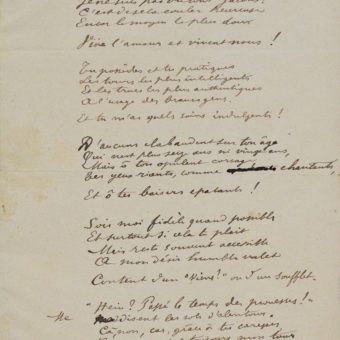 Je ne suis pas du tout jaloux !
C'est de cela couler heureux
Encor le moyen le plus doux
Vive l'amour et vivent nous !
Tu possèdes et tu pratiques
Les tours les plus intelligents
Et les trucs les plus authentiques
A l'usage des braves gens,
Et tu m'as quels soins indulgents !
D'aucuns clabaudent sur ton âge
Qui n'est plus seize ans ni vingt ans,
Mais ô ton opulent corsage,
Tes yeux riants, comme chantants,
Et ô tes baisers épatants !
Sois-moi fidèle quand possible
Et surtout si cela te plaît
Mais reste souvent accessible
A mon désir, humble valet
Content d'un "Viens !" ou d'un soufflet.
"Hein ? Passé le temps des prouesses !"
Me disent les sots d'alentour.
Ça, non, car, grâce à tes caresses